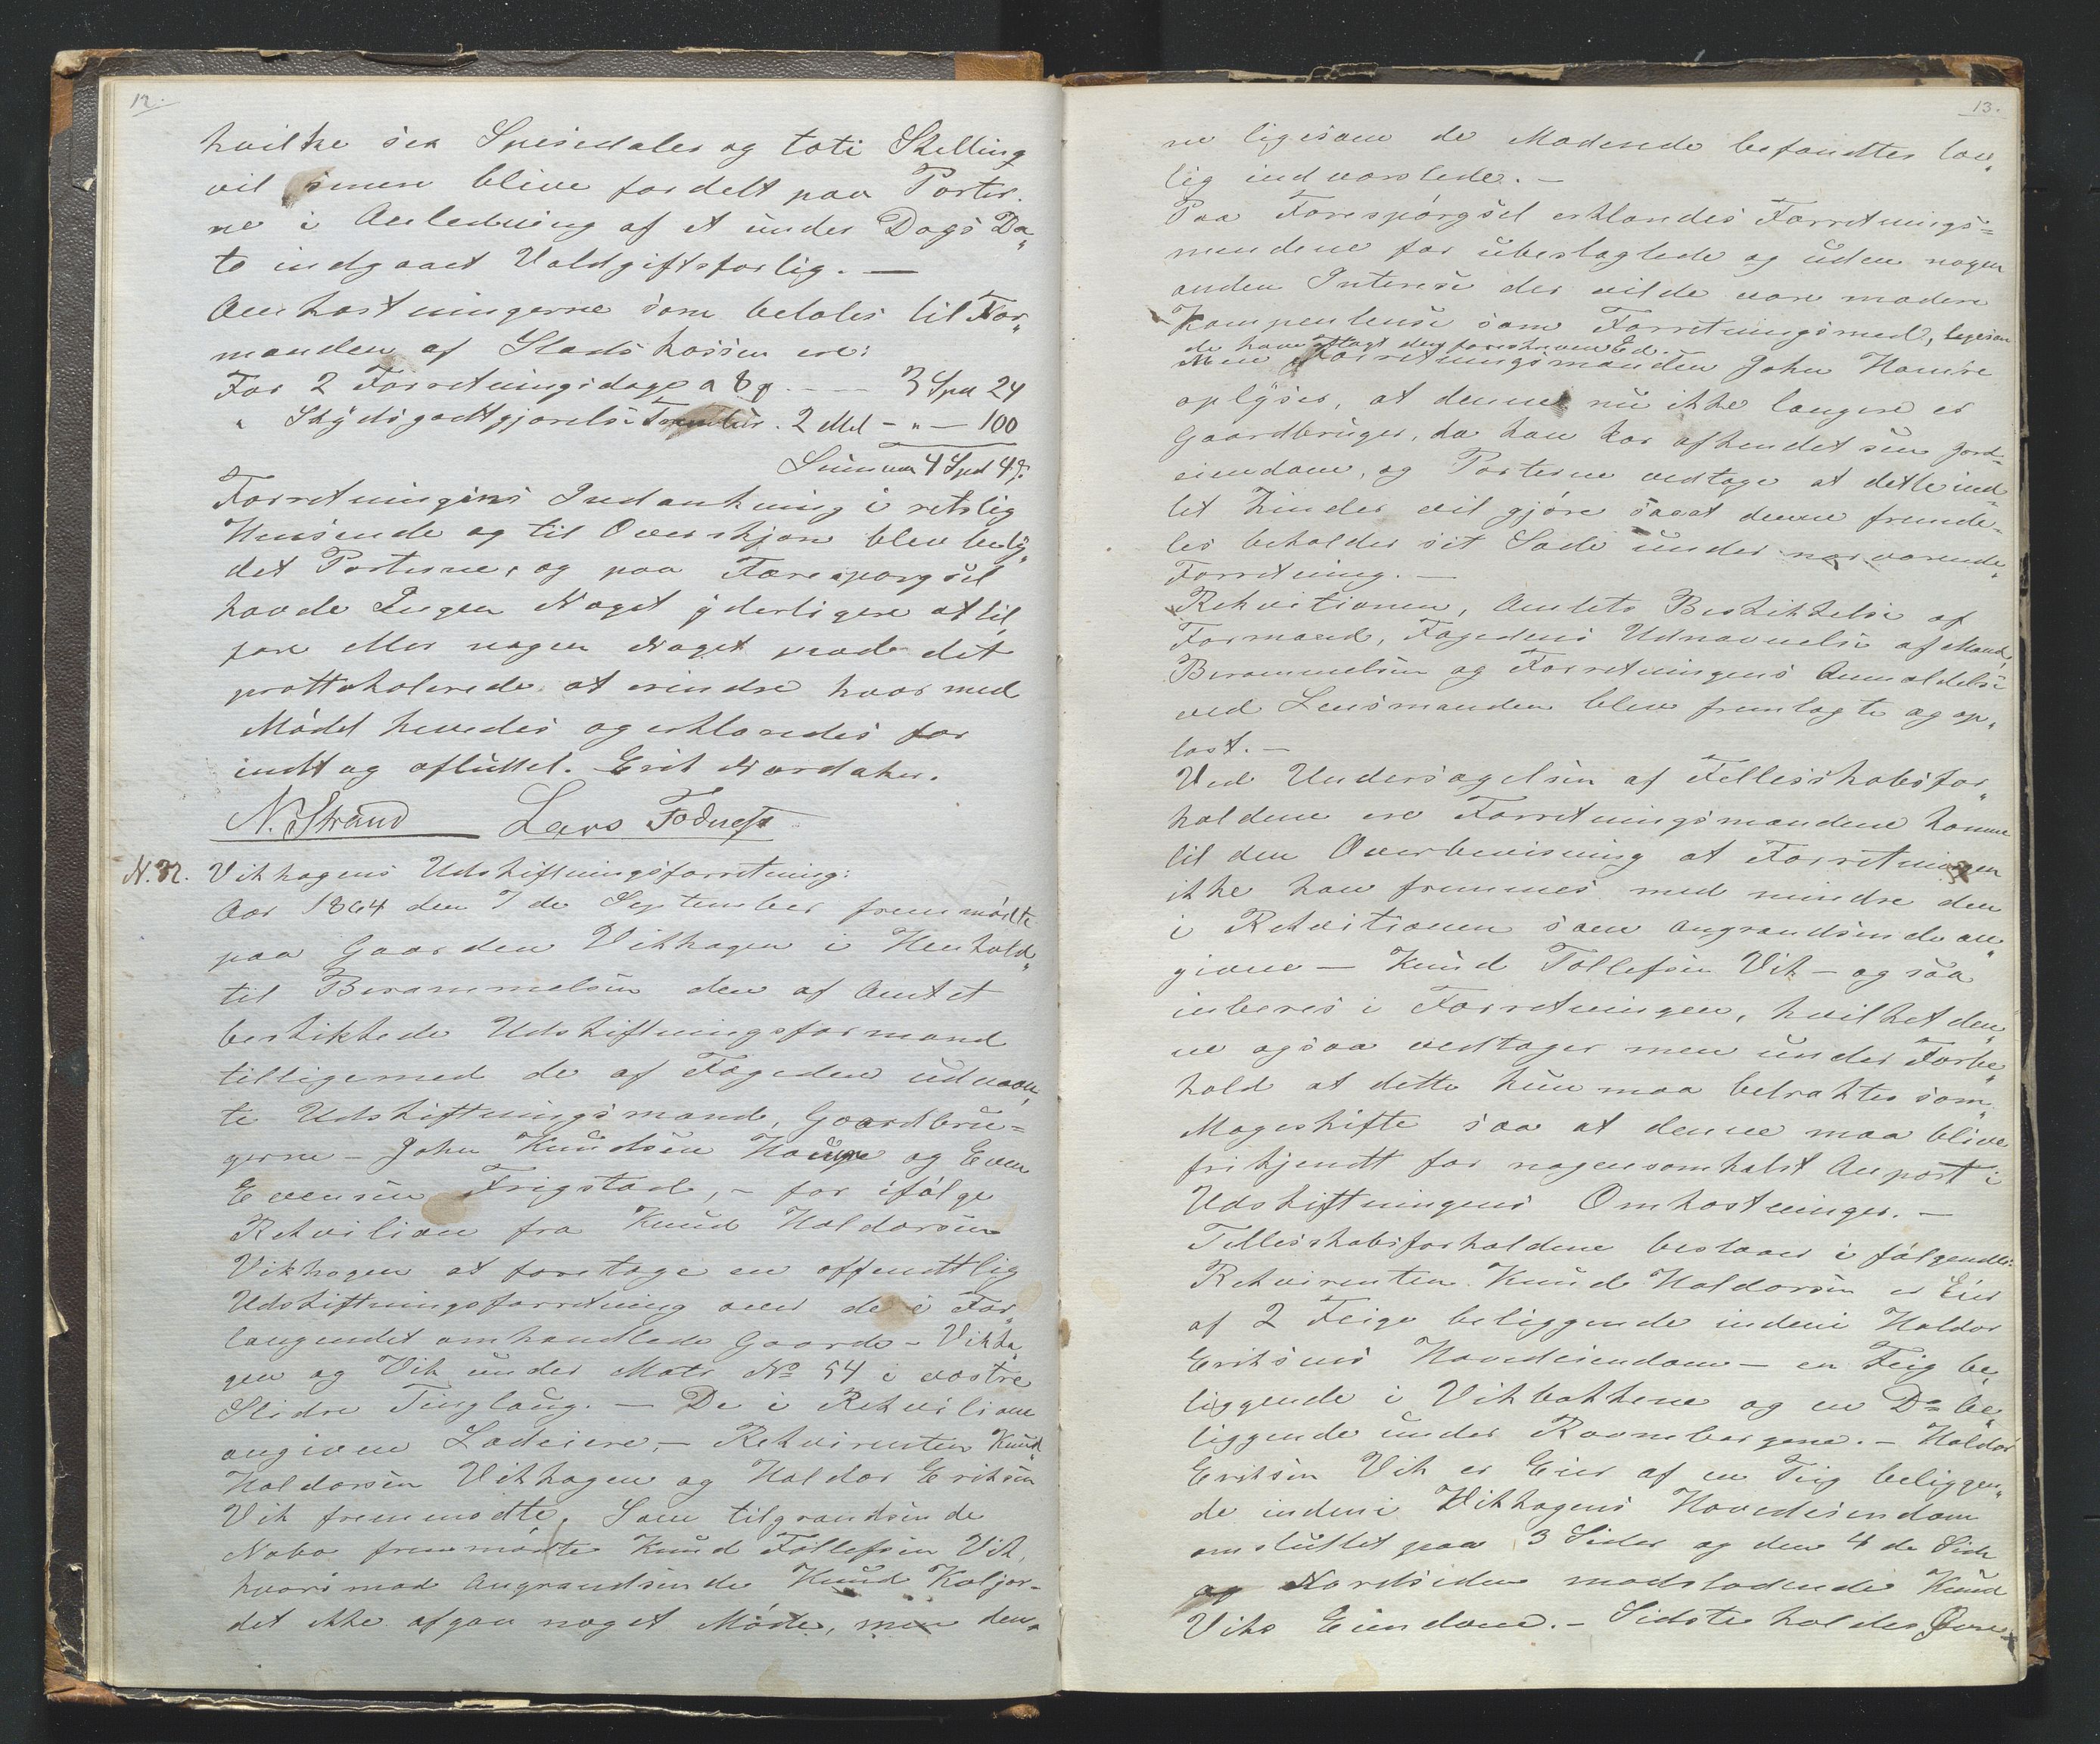 12.
hvilke sex Speciedaler og toti Skelling
vil imen blive fordelt paa Parter„
ne i Anledning af et under Dags Da„
to indgaaet Voldgiftsforlig. —
Omkostningerne som betales til For„
manden af Stads kassen ere:
For 2 Forretningsdage a 8 - - - 3 Spd 24
„ Skydsgodtgjørelse . 2 Mil - „ — 100
Summa 4 Spd 4 s.
Forretningens Indankning i retslig
Henseende og til Overskjøn blev bety„
det Parterne, og paa Forespørgsel
havde Ingen Noget yderligere at til„
føre eller nogen Noget mod det
prottokolerede at erindre hvormed
Mødet hevedes og erklæredes for
endt og afsluttet. Erik Nordaker.
N. Strand Lars Fodness
N. 32. Vikhagens Udskiftningsforretning:
Aar 1864 den 7de September fremmødte
paa Gaarden Vikhagen i Henhold„
til Berammelsen den af Amtet
beskikkede Udskiftningsformand
tilligemed de af Fogeden udnævn„
te Udskiftningsmænd, Gaardbru=
gerne - John Knudsen Haugre og Even
Evensen Frigstad, - for ifølge
Rekvisition fra Knud Haldorsen
Vikhagen at foretage en offenttlig
Udskiftningsforretning over de i For„
langendet omhandlede Gaarde - Vikha„
gen og Vik under Matr No 54 i vestre
Slidre Tinglaug. — De i Rekvisitionen
angivne Lodeiere, - Rekvirenten Knud
Haldorsen Vikhagen og Haldor Eriksen
Vik fremmødte. Som tilgrændsende
Nabo fremmødte Knud Tollefsen Vik,
hvorimod Angrændsende Knud Kaljor-
det ikke afgav noget Møde, men den„
13.
ne ligesom de Mødende befandtes lov„
lig indvarslede. —
Paa Forespørgsel erklærdes Forretnings=
mændene for ubeslægtede og uden nogen
anden Interese der vilde være modere
Kompentense som Forretningsmend, ligesom
de have aflagt den foreskrevne Ed.
Men Forretningsmanden John Haugre
oplyser, at denne nu ikke længere er
Gaardbruger, da han har afhendet sin Jord-
eiendom, og Parterne vedtage at dette ind-
tet hinder vil gjøre saaat denne fremde-
les beholder sit Sæde under nærværende„
Forretning. —
Rekvitionen, Amtets Beskikkelse af
Formand, Fogedens Udnævnelse af Mænd„
Berammelsen og Forretningens Anmeldelse
ved Lensmanden blev fremlagte og op„
læst. —
Ved Undersøgelsen af Fellesskabsfor„
holdene ere Forretningsmændene komne
til den Overbevisning at Forretningen
ikke kan fremmes med mindre den
i Rekvitionen som angrændsende an„
givne — Knud Tollefsen Vik — og saa
inberes i Forretningen, hvilket den„
ne ogsaa vedtager men under Forbe„
hold at dette kun maa betraktes som„
Mageskifte saa at denne maa blive
frikjendt for nogensomhelst Anpart i
Udskiftningens Omkostninger. —
Fellesskabsforholdene bestaaer i følgende:
Rekvirenten Knud Haldorsen er Eier
af 2 Teige beliggende indeni Haldor
Eriksens Hovedeiendom — en Teig be„
liggende i Vikbakkene og en Do be„
liggende under Ravnbergene. — Haldor
Eriksen Vik er Eier af en Teig beliggen„
de indeni Vikhagens Hovedeiendom
omsluttet paa 3 Sider og den 4de Side
og Nordsiden modstødende Knud
Viks Eiendom. — Sidste holdes